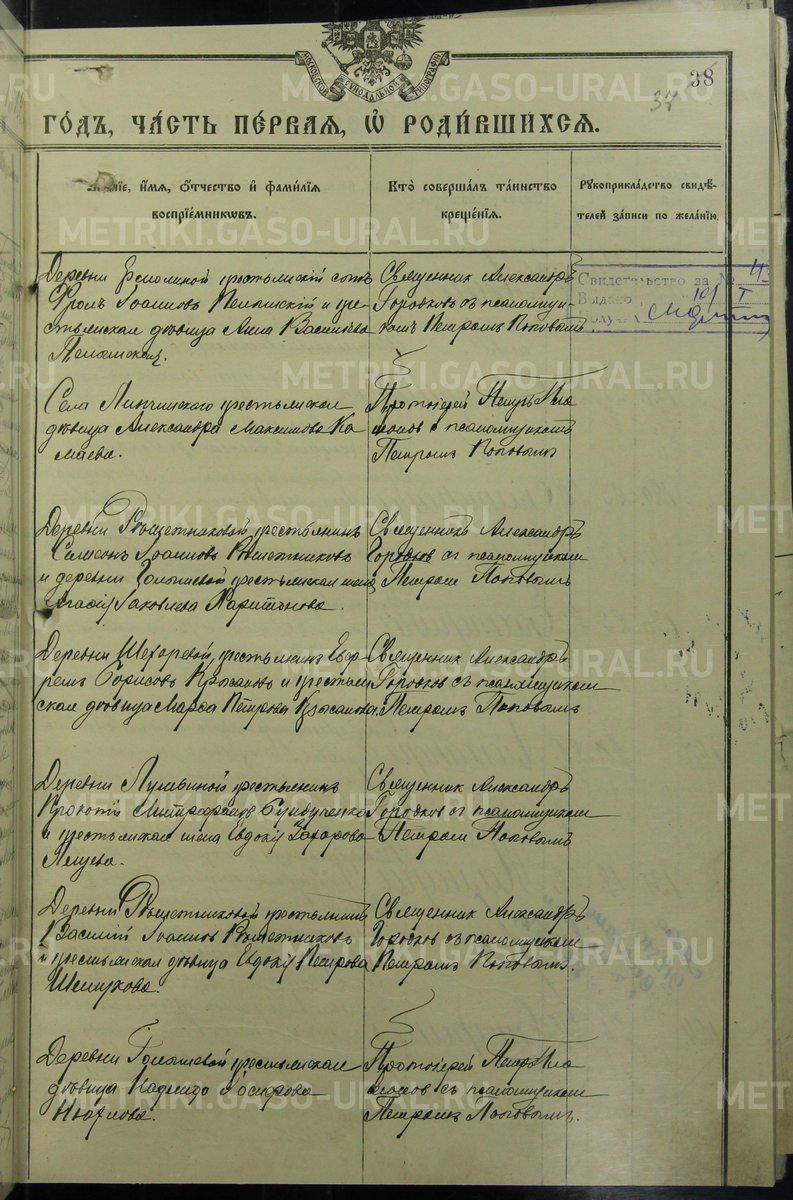 МОСКОВСКОЙ СѴНОДАЛЬНОЙ ТИПОГРАФІИ
38
37
ГО́ДЪ, ЧА́СТЬ ПЕ́РВАЯ, Ѡ҆ РОДИ́ВШИХСЯ.
и҆́мя, ѻ҆́тчество и҆ фами́лїя
воспрїе́мникѡвъ.
Кто̀ соверша́лъ та́инство
креще́нїя.
Рꙋкоприкла́дство свидѣ́-
телей за́писи по жела́нїю.
Деревни крестьянскій сынъ
Фролъ Іоанновъ и кре-
стьянская дѣвица Анна Васильева
Священник Александръ
Горбковъ съ псаломщи-
комъ Петромъ Поповымъ.
Свидетельство за №
Выдано 10/I
Получил
Села Липчинскаго крестьянская
дѣвица Александра Максимова Ка
маева.
Протоіерей Петръ
съ псаломщикомъ
Петромъ Поповымъ
Деревни Рѣшетниковой крестьянинъ
Симеонъ Іоанновъ Рѣшетниковъ
и деревни Голышевой крестьянская жена
Агафія Іаковлева Харитонова.
Священникъ Александръ
Горбковъ съ псаломщикомъ
Петромъ Поповымъ
Деревни крестьянинъ Евф-
ремъ Борисовъ и крестьян
ская дѣвица Марфа Петрова
Священник Александръ
Горбковъ съ псаломщикомъ
Петромъ Поповымъ
Деревни крестьянинъ
Прокопій Митрофановъ
и крестьянская жена Евдокія Захарова
Священник Александръ
Горбковъ съ псаломщикомъ
Петромъ Поповымъ
Деревни Рѣшетниковой крестьянинъ
Василій Іоанновъ Рѣшетниковъ
и крестьянская дѣвица Евдокія Петрова
Шелухова.
Священник Александръ
Горбковъ съ псаломщикомъ
Петромъ Поповымъ.
Деревни Голышевой крестьянская
дѣвица Надежда
Протоіерей Петръ
съ псаломщикомъ
Петромъ Поповымъ.
METRIKI.GASO-URAL.RU